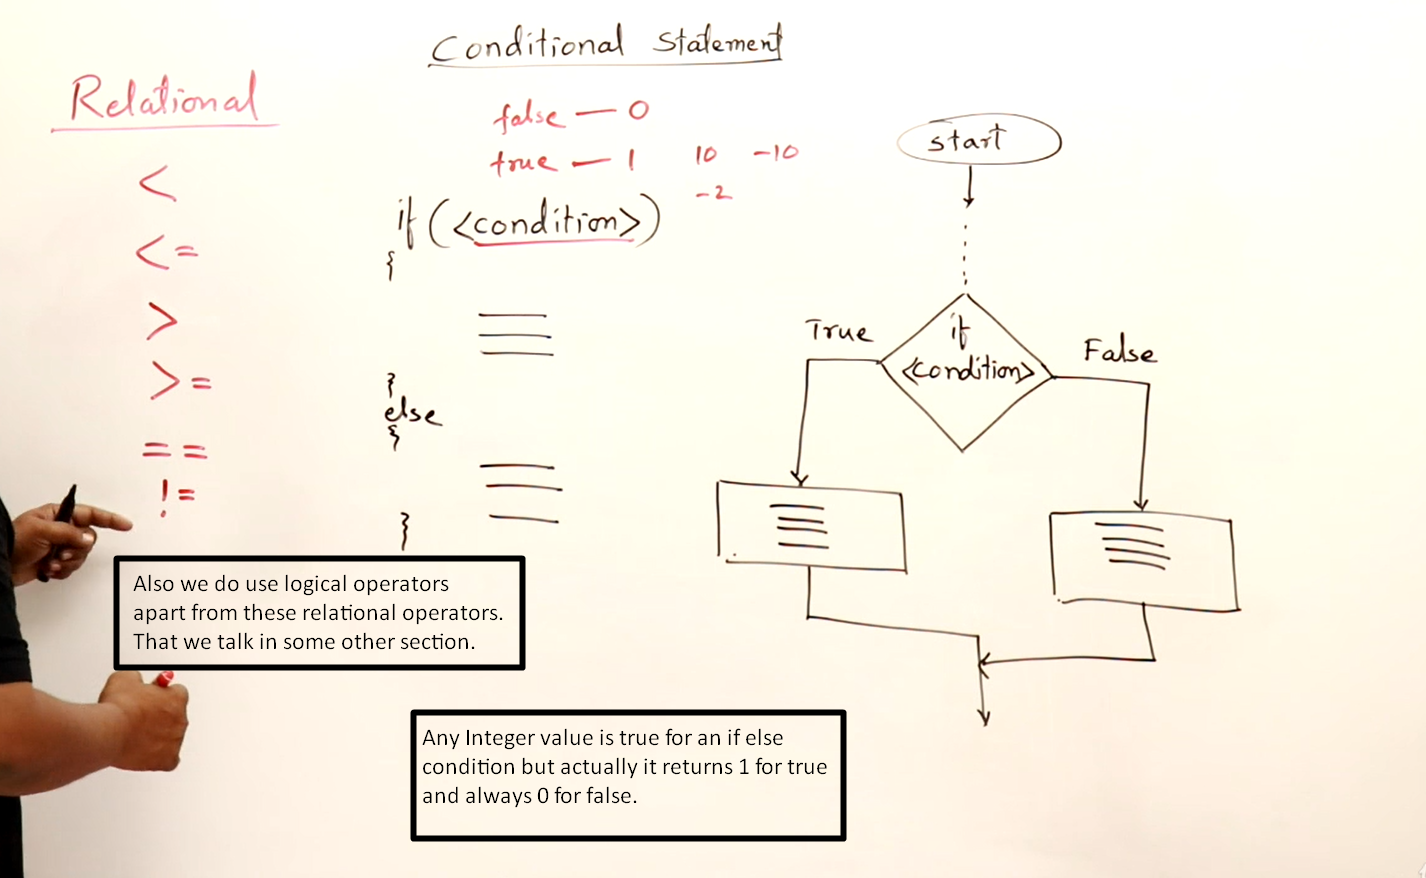 Conditional Statement
Relational
<
<=
>
>=
==
!=
false — 0
true — 1 10 -10
-2
if (<condition>)
{
}
else
{
}
start
if
<condition>
True
False
Also we do use logical operators
apart from these relational operators.
That we talk in some other section.
Any Integer value is true for an if else
condition but actually it returns 1 for true
and always 0 for false.